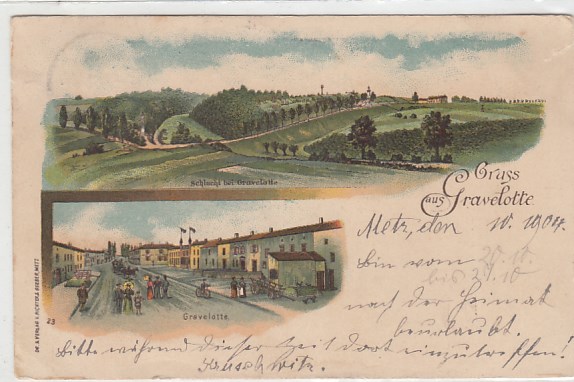 Schlucht bei Gravelotte
Gruss
aus Gravelotte
Metz, den 10. 1904.
Bin vom 20.10.
bis 24.10
nach der Heimat
beurlaubt.
Bitte während dieser Zeit dort einzutreffen!
Kruschwitz.
Gravelotte
23